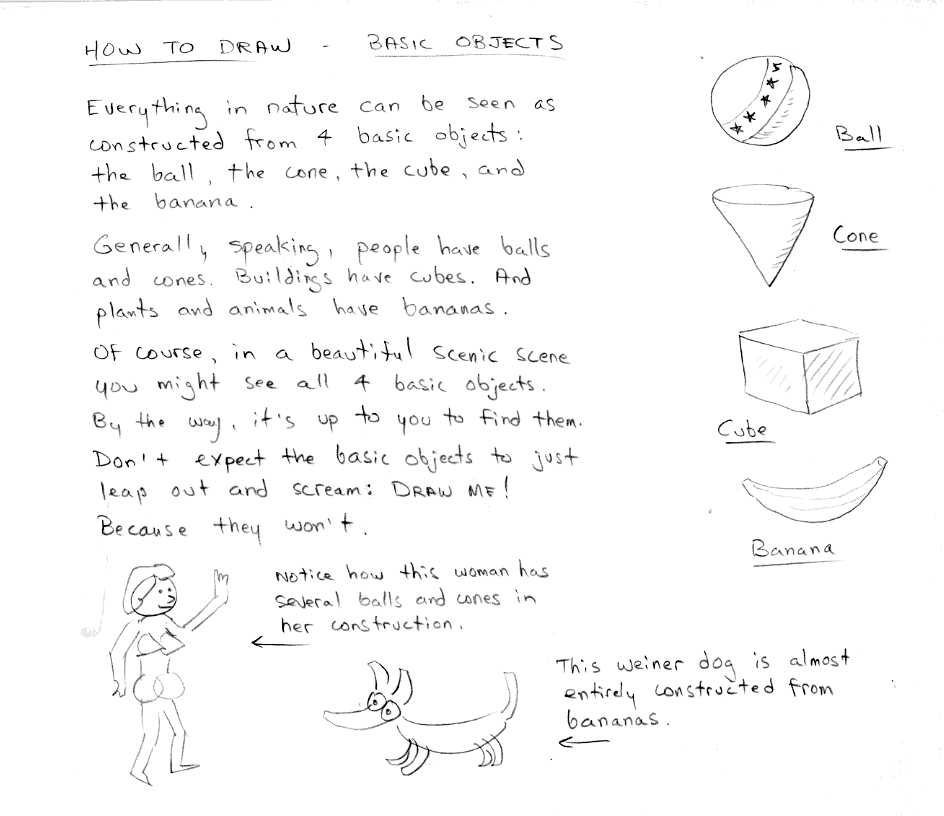 HOW TO DRAW - BASIC OBJECTS
Everything in nature can be seen as
constructed from 4 basic objects:
the ball, the cone, the cube, and
the banana.
Generally speaking, people have balls
and cones. Buildings have cubes. And
plants and animals have bananas.
Of course, in a beautiful scenic scene
you might see all 4 basic objects.
By the way, it's up to you to find them.
Don't expect the basic objects to just
leap out and scream: DRAW ME!
Because they won't.
Ball
Cone
Cube
Banana
Notice how this woman has
several balls and cones in
her construction.
This weiner dog is almost
entirely constructed from
bananas.